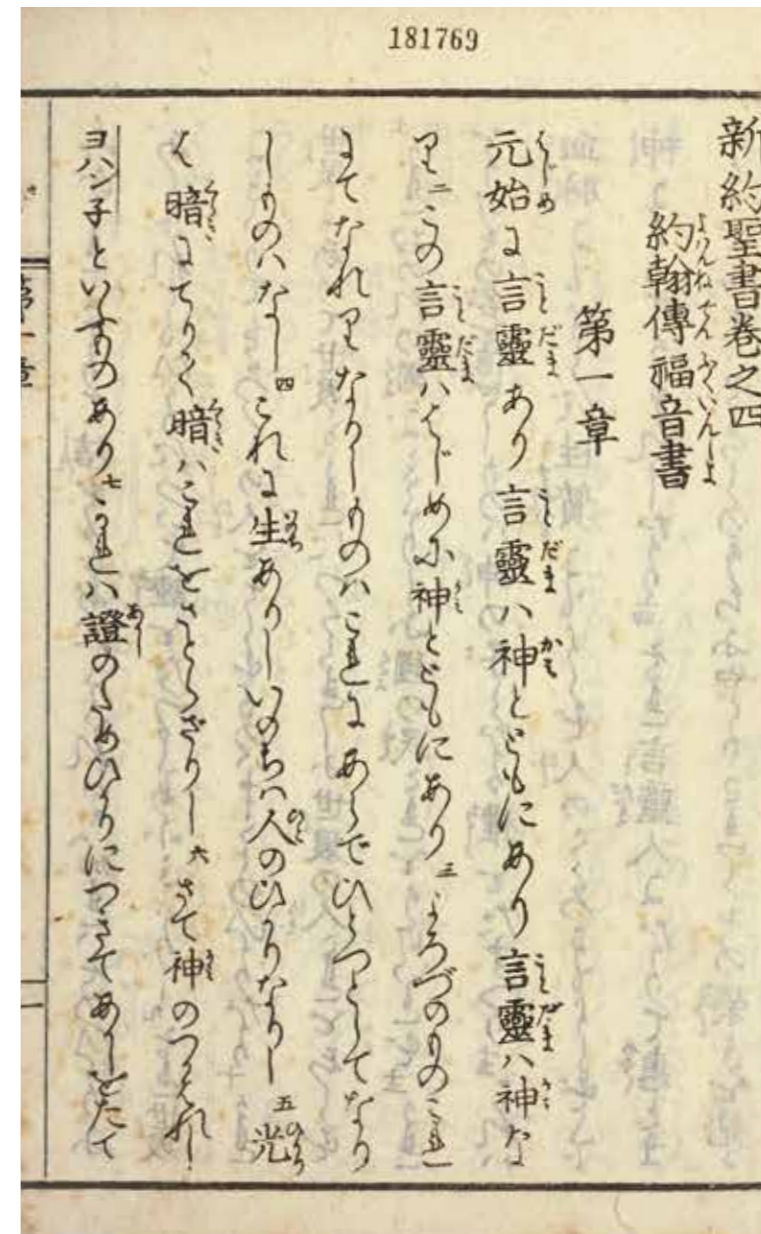 181769
新約聖書巻之四
約翰傳福音書
よはんねでん ふくいんしよ
第一章
元始に言靈あり言靈ハ神とともにあり言靈ハ神な
り二この言靈ハはじめに神とともにあり三よろづのものこれ
にてなれりなりしものハこれにあらでひとつとしてなり
しものハなし四これに生ありしいのちハ人のひかりなりし五光
は暗にてりて暗ハこれをさとらざりし六さて神のつかはし
ヨハン子といふものあり七これハ證のためひかりにつきてあかしをたて
第一章